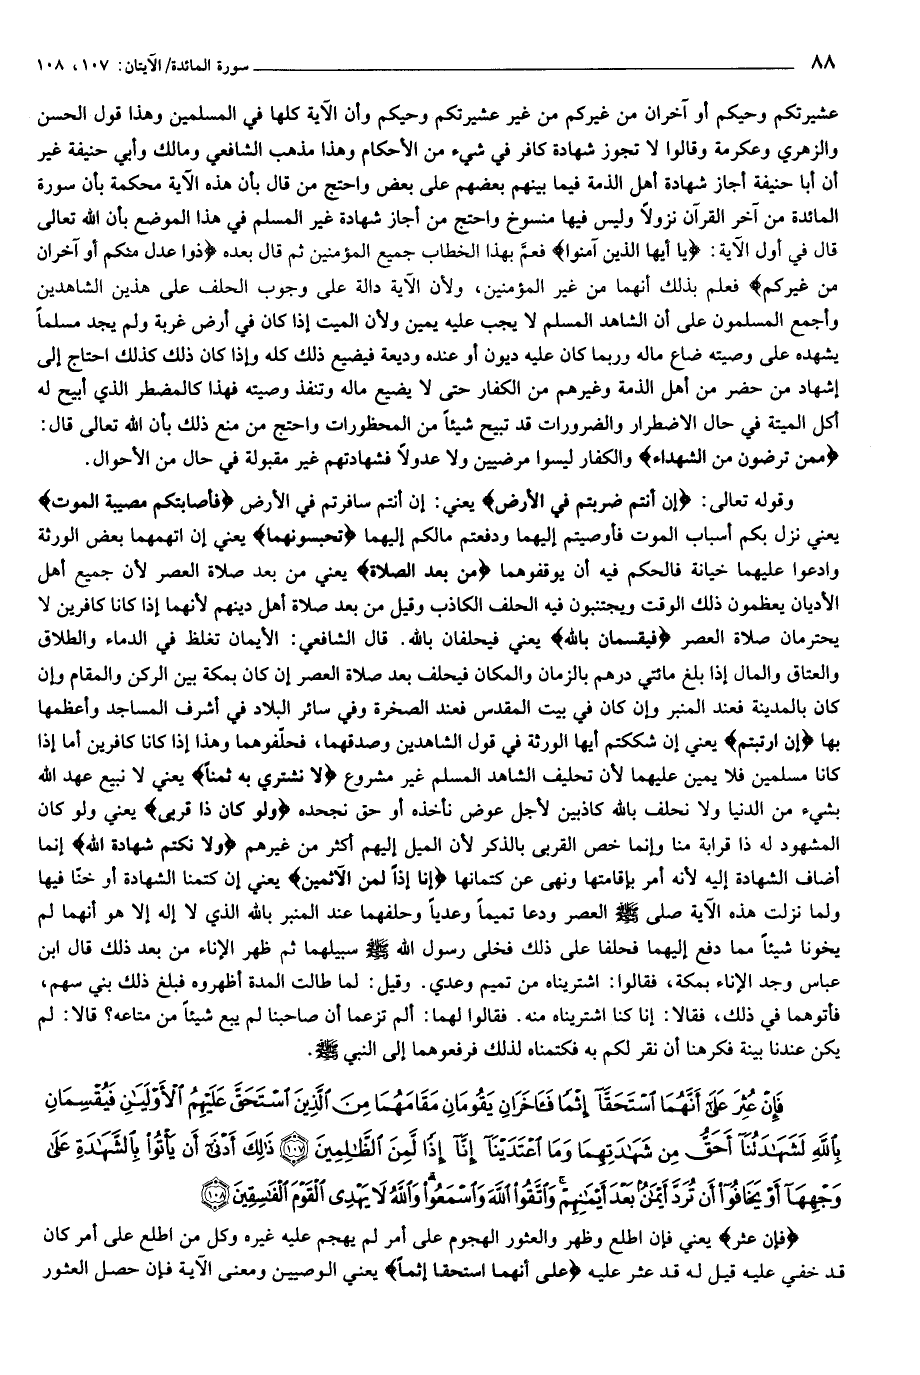 ٨٨ سورة المائدة/ الآيتان: ١٠٧، ١٠٨
عشيرتكم وحيكم أو آخران من غيركم من غير عشيرتكم وحيكم وأن الآية كلها في المسلمين وهذا قول الحسن
والزهري وعكرمة وقالوا لا تجوز شهادة كافر في شيء من الأحكام وهذا مذهب الشافعي ومالك وأبي حنيفة غير
أن أبا حنيفة أجاز شهادة أهل الذمة فيما بينهم بعضهم على بعض واحتج من قال بأن هذه الآية محكمة بأن سورة
المائدة من آخر القرآن نزولاً وليس فيها منسوخ واحتج من أجاز شهادة غير المسلم في هذا الموضع بأن الله تعالى
قال في أول الآية: ﴿يا أيها الذين آمنوا﴾ فعمَّ بهذا الخطاب جميع المؤمنين ثم قال بعده ﴿ذوا عدل منكم أو آخران
من غيركم﴾ فعلم بذلك أنهما من غير المؤمنين، ولأن الآية دالة على وجوب الحلف على هذين الشاهدين
وأجمع المسلمون على أن الشاهد المسلم لا يجب عليه يمين ولأن الميت إذا كان في أرض غربة ولم يجد مسلماً
يشهده على وصيته ضاع ماله وربما كان عليه ديون أو عنده وديعة فيضيع ذلك كله وإذا كان ذلك كذلك احتاج إلى
إشهاد من حضر من أهل الذمة وغيرهم من الكفار حتى لا يضيع ماله وتنفذ وصيته فهذا كالمضطر الذي أبيح له
أكل الميتة في حال الاضطرار والضرورات قد تبيح شيئاً من المحظورات واحتج من منع ذلك بأن الله تعالى قال:
﴿ممن ترضون من الشهداء﴾ والكفار ليسوا مرضيين ولا عدولاً فشهادتهم غير مقبولة في حال من الأحوال.
وقوله تعالى: ﴿إن أنتم ضربتم في الأرض﴾ يعني: إن أنتم سافرتم في الأرض ﴿فأصابتكم مصيبة الموت﴾
يعني نزل بكم أسباب الموت فأوصيتم إليهما ودفعتم مالكم إليهما ﴿تحبسونهما﴾ يعني إن اتهمهما بعض الورثة
وادعوا عليهما خيانة فالحكم فيه أن يوقفوهما ﴿من بعد الصلاة﴾ يعني من بعد صلاة العصر لأن جميع أهل
الأديان يعظمون ذلك الوقت ويجتنبون فيه الحلف الكاذب وقيل من بعد صلاة أهل دينهم لأنهما إذا كانا كافرين لا
يحترمان صلاة العصر ﴿فيقسمان بالله﴾ يعني فيحلفان بالله. قال الشافعي: الأيمان تغلظ في الدماء والطلاق
والعتاق والمال إذا بلغ مائتي درهم بالزمان والمكان فيحلف بعد صلاة العصر إن كان بمكة بين الركن والمقام وإن
كان بالمدينة فعند المنبر وإن كان في بيت المقدس فعند الصخرة وفي سائر البلاد في أشرف المساجد وأعظمها
بها ﴿إن ارتبتم﴾ يعني إن شككتم أيها الورثة في قول الشاهدين وصدقهما، فحلّفوهما وهذا إذا كانا كافرين أما إذا
كانا مسلمين فلا يمين عليهما لأن تحليف الشاهد المسلم غير مشروع ﴿لا نشتري به ثمناً﴾ يعني لا نبيع عهد الله
بشيء من الدنيا ولا نحلف بالله كاذبين لأجل عوض نأخذه أو حق نجحده ﴿ولو كان ذا قربى﴾ يعني ولو كان
المشهود له ذا قرابة منا وإنما خص القربى بالذكر لأن الميل إليهم أكثر من غيرهم ﴿ولا نكتم شهادة الله﴾ إنما
أضاف الشهادة إليه لأنه أمر بإقامتها ونهى عن كتمانها ﴿إنا إذاً لمن الآثمين﴾ يعني إن كتمنا الشهادة أو خنّا فيها
ولما نزلت هذه الآية صلى ﷺ العصر ودعا تميماً وعدياً وحلفهما عند المنبر بالله الذي لا إله إلا هو أنهما لم
يخونا شيئاً مما دفع إليهما فحلفا على ذلك فخلى رسول الله ﷺ سبيلهما ثم ظهر الإناء من بعد ذلك قال ابن
عباس وجد الإناء بمكة، فقالوا: اشتريناه من تميم وعدي. وقيل: لما طالت المدة أظهروه فبلغ ذلك بني سهم،
فأتوهما في ذلك، فقالا: إنا كنا اشتريناه منه. فقالوا لهما: ألم تزعما أن صاحبنا لم يبع شيئاً من متاعه؟ قالا: لم
يكن عندنا بينة فكرهنا أن نقر لكم به فكتمناه لذلك فرفعوهما إلى النبي ﷺ.
فَإِنْ عُثِرَ عَلَىٰٓ أَنَّهُمَا ٱسْتَحَقَّآ إِثْمًا فَـَٔاخَرَانِ يَقُومَانِ مَقَامَهُمَا مِنَ ٱلَّذِينَ ٱسْتَحَقَّ عَلَيْهِمُ ٱلْأَوْلَيَـٰنِ فَيُقْسِمَانِ
بِٱللَّهِ لَشَهَـٰدَتُنَآ أَحَقُّ مِن شَهَـٰدَتِهِمَا وَمَا ٱعْتَدَيْنَآ إِنَّآ إِذًا لَّمِنَ ٱلظَّـٰلِمِينَ ﴿١٠٧﴾ ذَٰلِكَ أَدْنَىٰٓ أَن يَأْتُوا۟ بِٱلشَّهَـٰدَةِ عَلَىٰ
وَجْهِهَآ أَوْ يَخَافُوٓا۟ أَن تُرَدَّ أَيْمَـٰنٌۢ بَعْدَ أَيْمَـٰنِهِمْ ۗ وَٱتَّقُوا۟ ٱللَّهَ وَٱسْمَعُوا۟ ۗ وَٱللَّهُ لَا يَهْدِى ٱلْقَوْمَ ٱلْفَـٰسِقِينَ ﴿١٠٨﴾
﴿فإن عثر﴾ يعني فإن اطلع وظهر والعثور الهجوم على أمر لم يهجم عليه غيره وكل من اطلع على أمر كان
قد خفي عليه قيل له قد عثر عليه ﴿على أنهما استحقا إثماً﴾ يعني الوصيين ومعنى الآية فإن حصل العثور